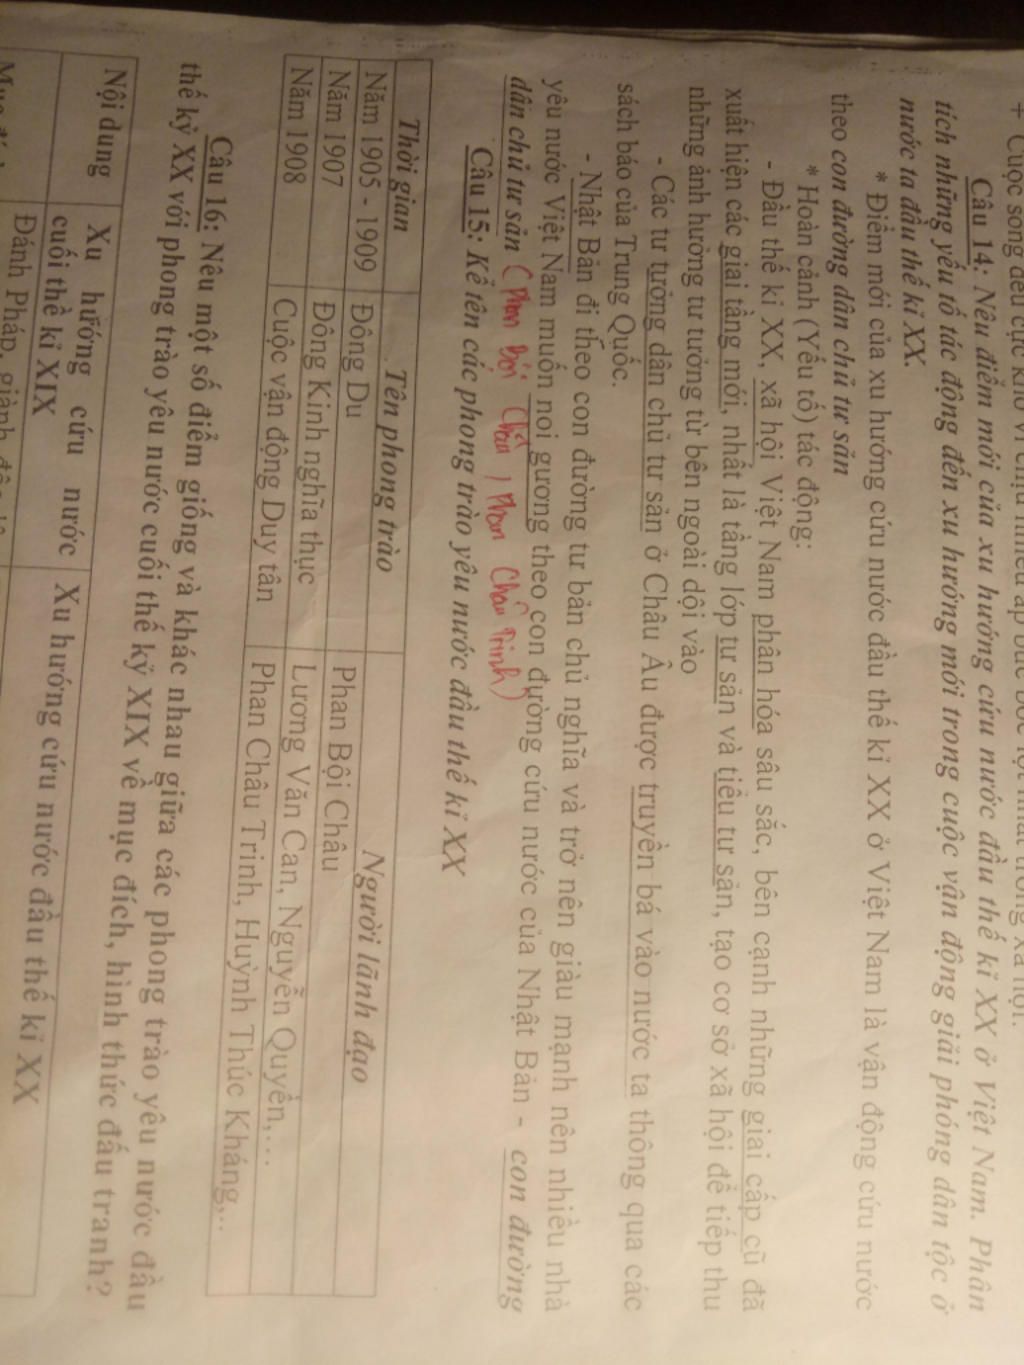 + Cuộc sống đều cực khổ vì chịu nhiều áp bức bóc lột nhất trong xã hội.
Câu 14: Nêu điểm mới của xu hướng cứu nước đầu thế kỉ XX ở Việt Nam. Phân
tích những yếu tố tác động đến xu hướng mới trong cuộc vận động giải phóng dân tộc ở
nước ta đầu thế kỉ XX.
* Điểm mới của xu hướng cứu nước đầu thế kỉ XX ở Việt Nam là vận động cứu nước
theo con đường dân chủ tư sản
* Hoàn cảnh (Yếu tố) tác động:
- Đầu thế kỉ XX, xã hội Việt Nam phân hóa sâu sắc, bên cạnh những giai cấp cũ đã
xuất hiện các giai tầng mới, nhất là tầng lớp tư sản và tiểu tư sản, tạo cơ sở xã hội để tiếp thu
những ảnh hưởng tư tưởng từ bên ngoài dội vào
- Các tư tưởng dân chủ tư sản ở Châu Âu được truyền bá vào nước ta thông qua các
sách báo của Trung Quốc.
- Nhật Bản đi theo con đường tư bản chủ nghĩa và trở nên giàu mạnh nên nhiều nhà
yêu nước Việt Nam muốn noi gương theo con đường cứu nước của Nhật Bản - con đường
dân chủ tư sản (Phan Bội Châu, Phan Châu Trinh)
Câu 15: Kể tên các phong trào yêu nước đầu thế kỉ XX
Thời gian Tên phong trào Người lãnh đạo
Năm 1905 - 1909 Đông Du Phan Bội Châu
Năm 1907 Đông Kinh nghĩa thục Lương Văn Can, Nguyễn Quyền,...
Năm 1908 Cuộc vận động Duy tân Phan Châu Trinh, Huỳnh Thúc Kháng,..
Câu 16: Nêu một số điểm giống và khác nhau giữa các phong trào yêu nước đầu
thế kỷ XX với phong trào yêu nước cuối thế kỷ XIX về mục đích, hình thức đấu tranh?
Nội dung Xu hướng cứu nước Xu hướng cứu nước đầu thế kỉ XX
cuối thế kỉ XIX
Đánh Pháp, giành